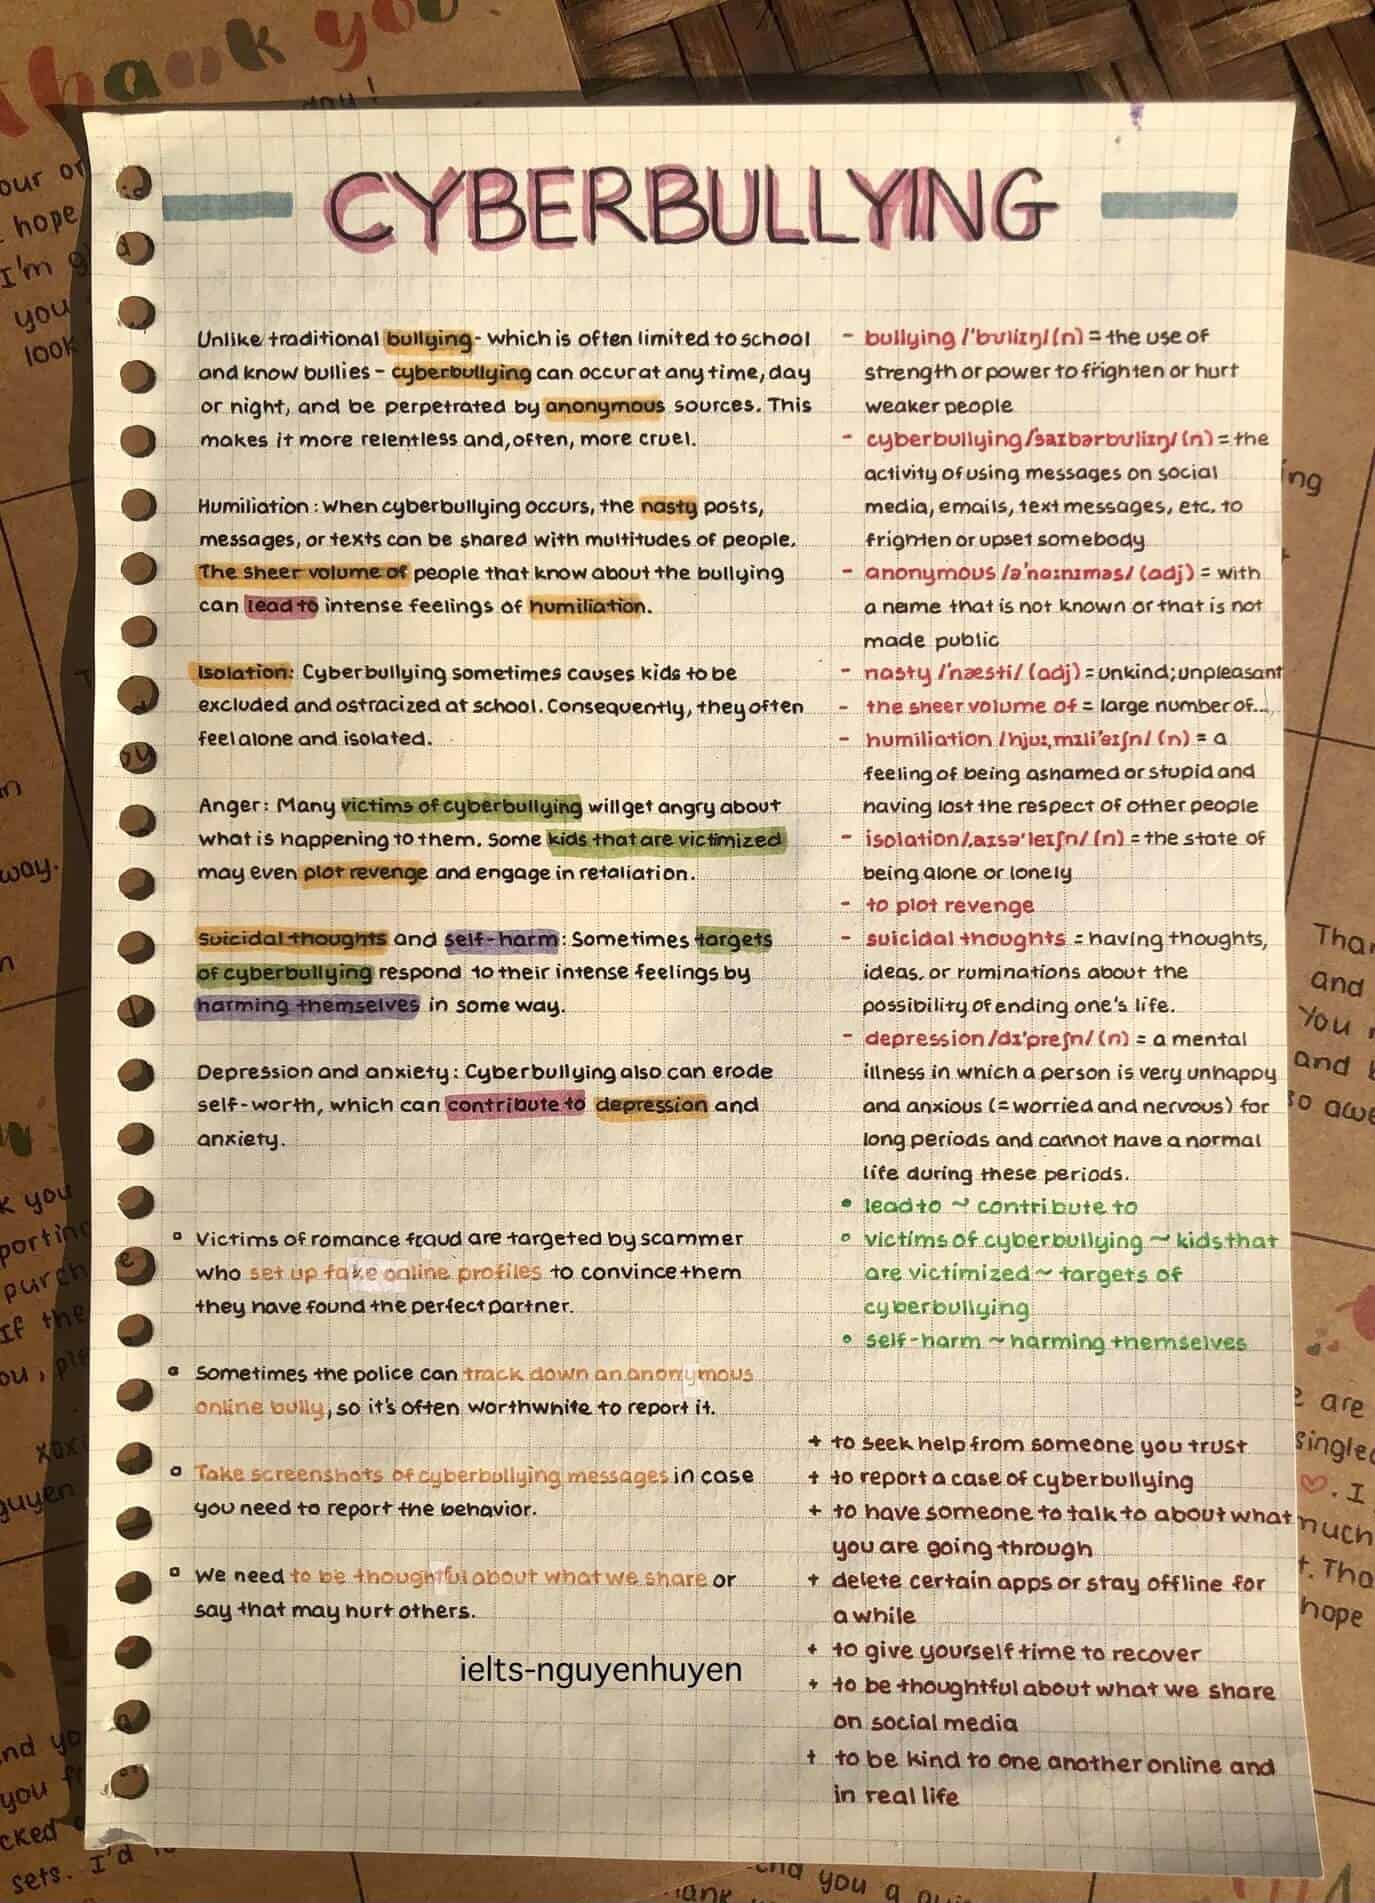 CYBERBULLYING
Unlike traditional bullying - which is often limited to school
and know bullies - cyberbullying can occur at any time, day
or night, and be perpetrated by anonymous sources. This
makes it more relentless and, often, more cruel.
Humiliation: When cyberbullying occurs, the nasty posts,
messages, or texts can be shared with multitudes of people.
The sheer volume of people that know about the bullying
can lead to intense feelings of humiliation.
Isolation: Cyberbullying sometimes causes kids to be
excluded and ostracized at school. Consequently, they often
feel alone and isolated.
Anger: Many victims of cyberbullying will get angry about
what is happening to them. Some kids that are victimized
may even plot revenge and engage in retaliation.
Suicidal thoughts and self-harm: Sometimes targets
of cyberbullying respond to their intense feelings by
harming themselves in some way.
Depression and anxiety: Cyberbullying also can erode
self-worth, which can contribute to depression and
anxiety.
Victims of romance fraud are targeted by scammer
who set up fake online profiles to convince them
they have found the perfect partner.
Sometimes the police can track down an anonymous
online bully, so it's often worthwhite to report it.
Take screenshots of cyberbullying messages in case
you need to report the behavior.
We need to be thoughtful about what we share or
say that may hurt others.
ielts-nguyenhuyen
- bullying /'bʊliɪŋ/ (n) = the use of
strength or power to frighten or hurt
weaker people
- cyberbullying /'saɪbərbʊliɪŋ/ (n) = the
activity of using messages on social
media, emails, text messages, etc. to
frighten or upset somebody
- anonymous /ə'nɑːnɪməs/ (adj) = with
a name that is not known or that is not
made public
- nasty /'næsti/ (adj) = unkind; unpleasant
- the sheer volume of = large number of...
- humiliation /hjuːˌmɪli'eɪʃn/ (n) = a
feeling of being ashamed or stupid and
having lost the respect of other people
- isolation /ˌaɪsə'leɪʃn/ (n) = the state of
being alone or lonely
- to plot revenge
- suicidal thoughts = having thoughts,
ideas, or ruminations about the
possibility of ending one's life.
- depression /dɪ'preʃn/ (n) = a mental
illness in which a person is very unhappy
and anxious (= worried and nervous) for
long periods and cannot have a normal
life during these periods.
• lead to ~ contribute to
• victims of cyberbullying ~ kids that
are victimized ~ targets of
cyberbullying
• self-harm ~ harming themselves
+ to seek help from someone you trust
+ to report a case of cyberbullying
+ to have someone to talk to about what
you are going through
+ delete certain apps or stay offline for
a while
+ to give yourself time to recover
+ to be thoughtful about what we share
on social media
+ to be kind to one another online and
in real life
thank you